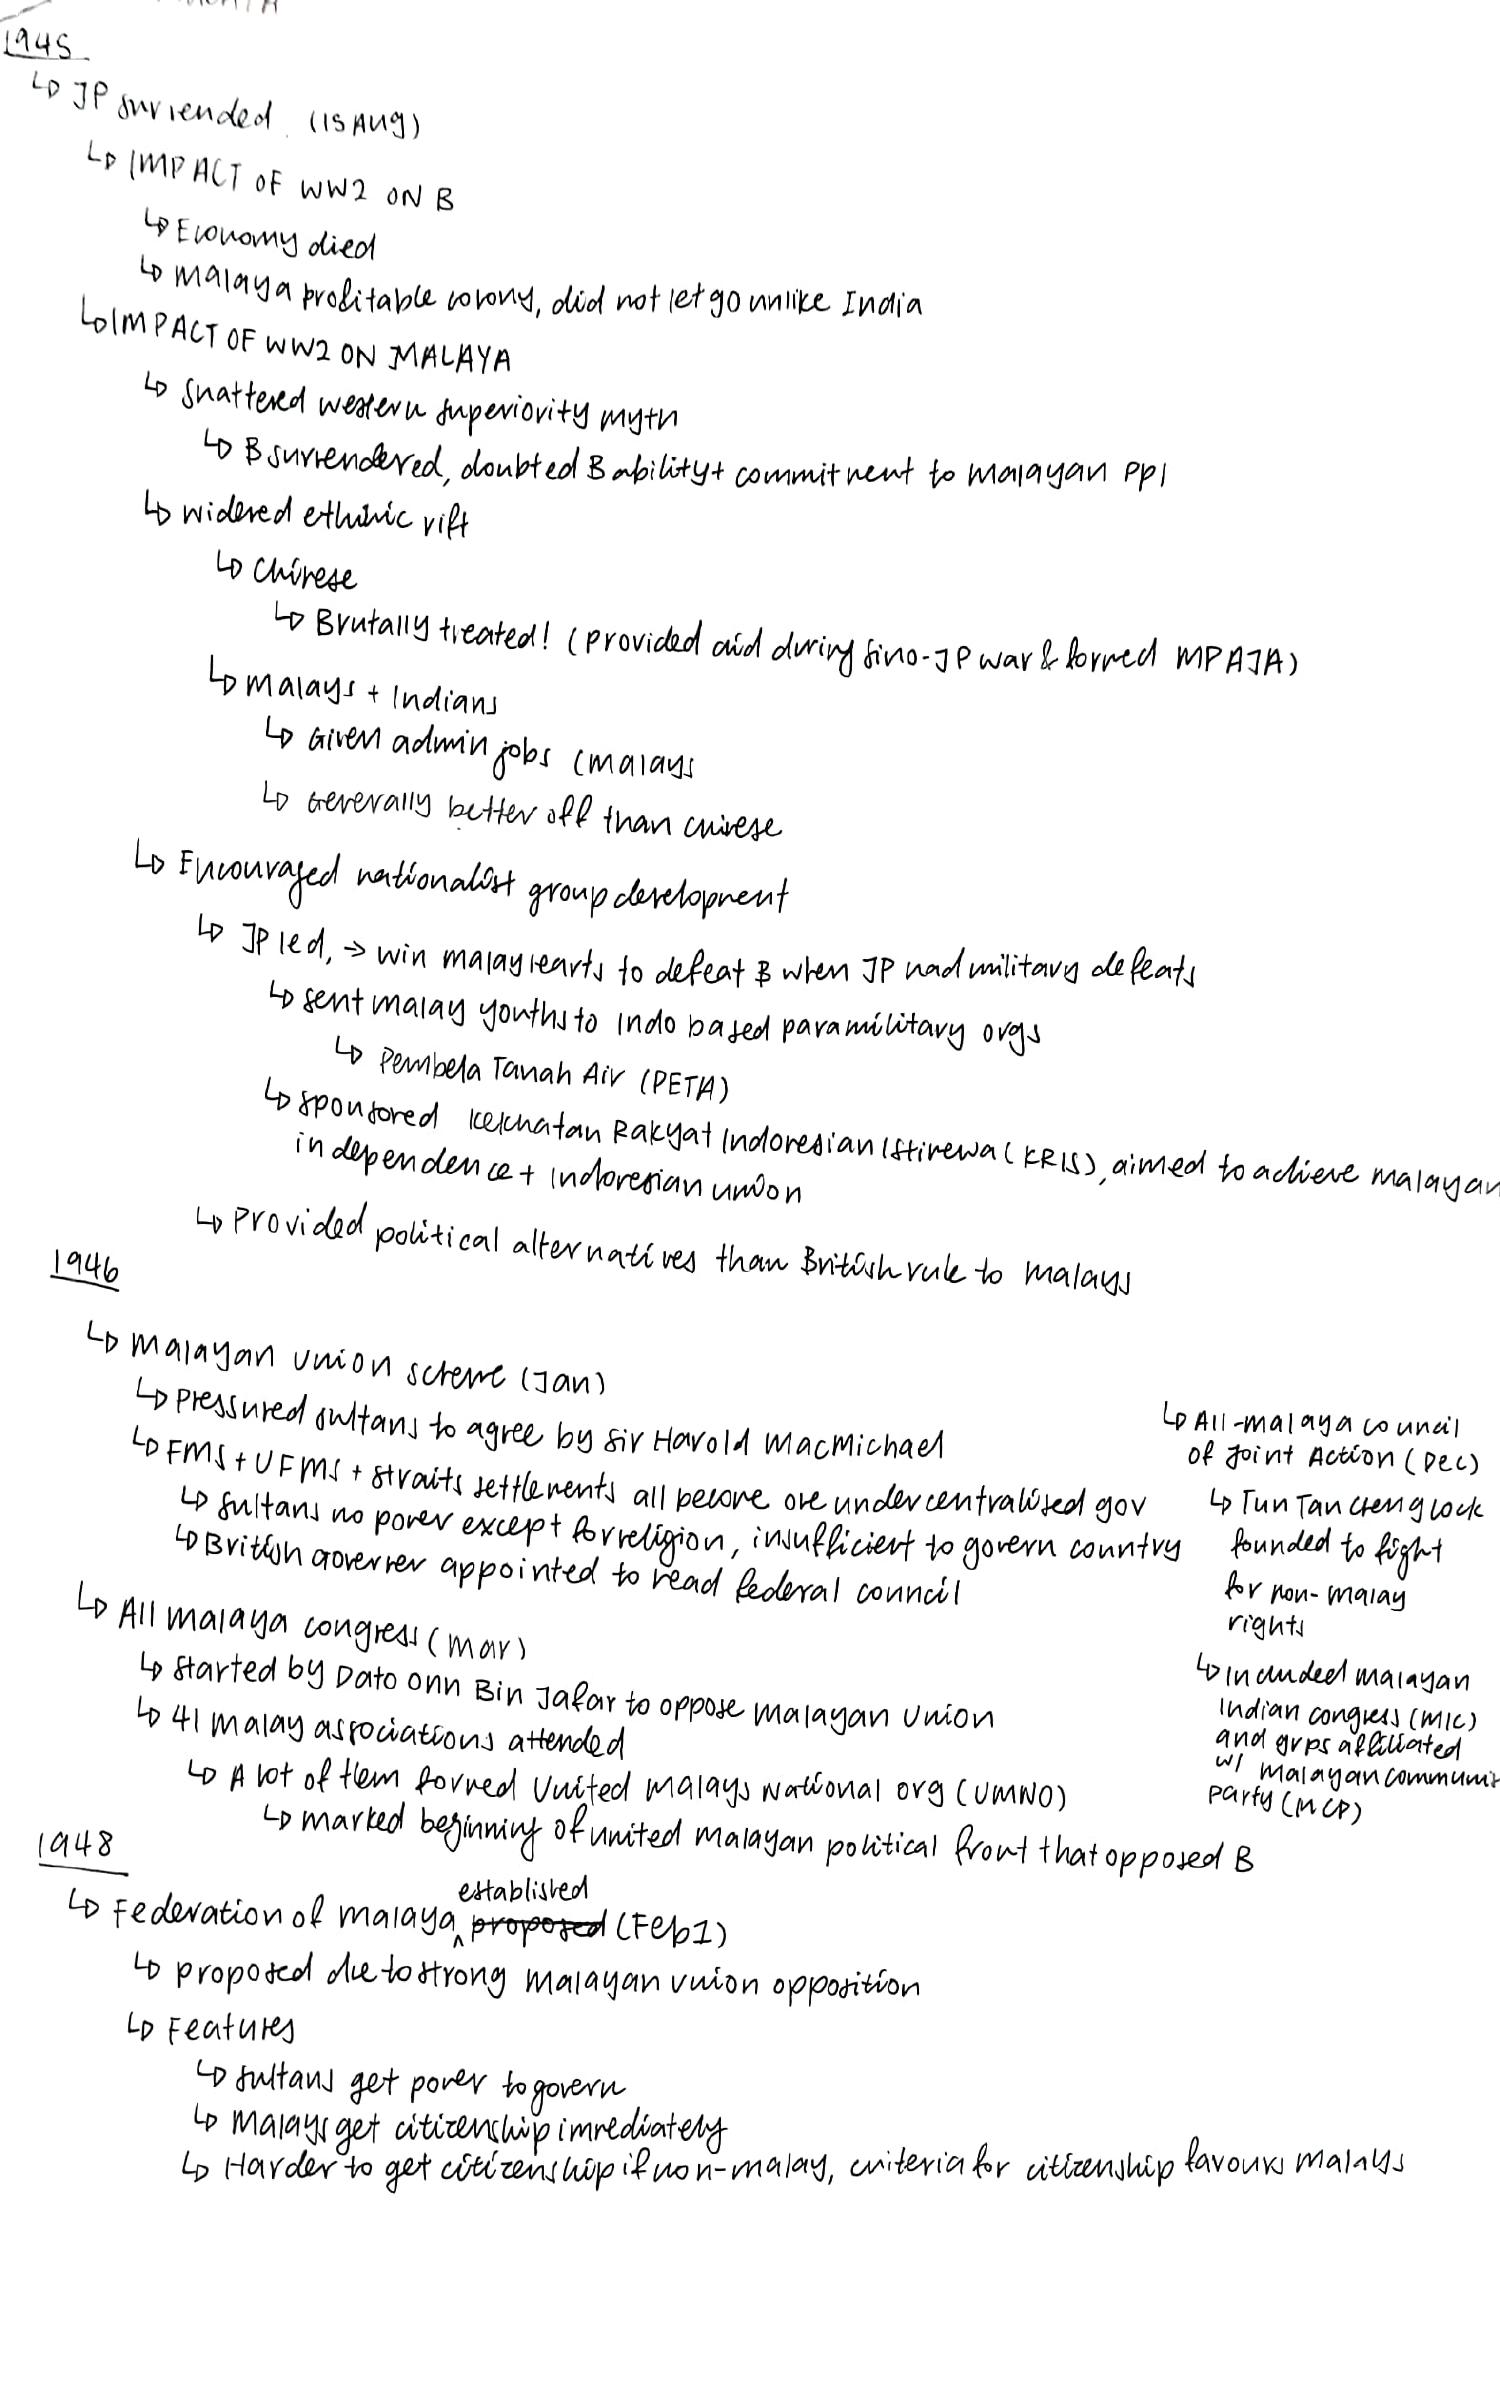 1945
↳ JP surrended (15 Aug)
↳ IMPACT OF WW2 ON B
↳ Economy died
↳ Malaya profitable colony, did not let go unlike India
↳ IMPACT OF WW2 ON MALAYA
↳ Shattered western superiority myth
↳ B surrendered, doubted B ability + commitment to Malayan ppl
↳ widened ethnic rift
↳ Chinese
↳ Brutally treated! (provided aid during Sino-JP war & formed MPAJA)
↳ Malays + Indians
↳ Given admin jobs (Malays
↳ Generally better off than Chinese
↳ Encouraged nationalist group development
↳ JP led, → win Malay hearts to defeat B when JP had military defeats
↳ sent Malay youths to Indo based paramilitary orgs
↳ Pembela Tanah Air (PETA)
↳ sponsored Kekuatan Rakyat Indonesian Istimewa (KRIS), aimed to achieve Malayan
independence + Indonesian union
↳ Provided political alternatives than British rule to Malays
1946
↳ Malayan Union scheme (Jan)
↳ Pressured sultans to agree by Sir Harold MacMichael
↳ FMS + UFMS + Straits Settlements all become one under centralised gov
↳ Sultans no power except for religion, insufficient to govern country
↳ British governer appointed to head federal council
↳ All Malaya Congress (Mar)
↳ Started by Dato Onn Bin Jafar to oppose Malayan Union
↳ 41 Malay associations attended
↳ A lot of them formed United Malays National Org (UMNO)
↳ Marked beginning of united Malayan political front that opposed B
↳ All-Malaya Council
of Joint Action (Dec)
↳ Tun Tan Cheng Lock
founded to fight
for non-Malay
rights
↳ Included Malayan
Indian Congress (MIC)
and grps affiliated
w/ Malayan Communist
Party (MCP)
1948
established
↳ Federation of Malaya ^ proposed (Feb 1)
↳ proposed due to strong Malayan Union opposition
↳ Features
↳ Sultans get power to govern
↳ Malays get citizenship immediately
↳ Harder to get citizenship if non-Malay, criteria for citizenship favours Malays